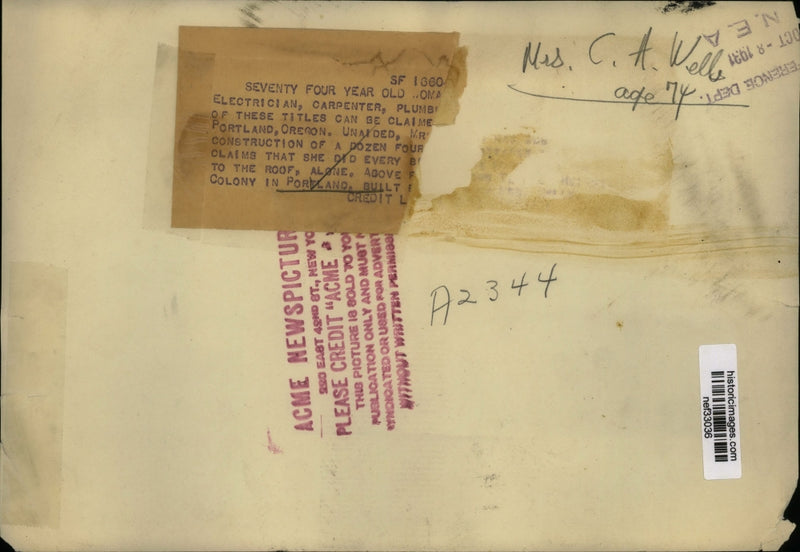 SF 1660
SEVENTY FOUR YEAR OLD
ELECTRICIAN, CARPENTER,
OF THESE TITLES CAN BE
PORTLAND, OREGON. UNAIDED,
CONSTRUCTION OF A DOZEN
CLAIMS THAT SHE DID EVERY
TO THE ROOF, ALONE. ABOVE
COLONY IN PORTLAND, BUILT
CREDIT
Mrs. C. A. Wells
age 74.
OCT - 8 1931
N. E. A.
DEPT.
ACME
220 EAST 42ND ST., NEW
PLEASE CREDIT "ACME
THIS PICTURE IS SOLD TO
PUBLICATION ONLY AND MUST
SYNDICATED OR USED FOR
WITHOUT WRITTEN
A2344
historicimages.com
nef33036